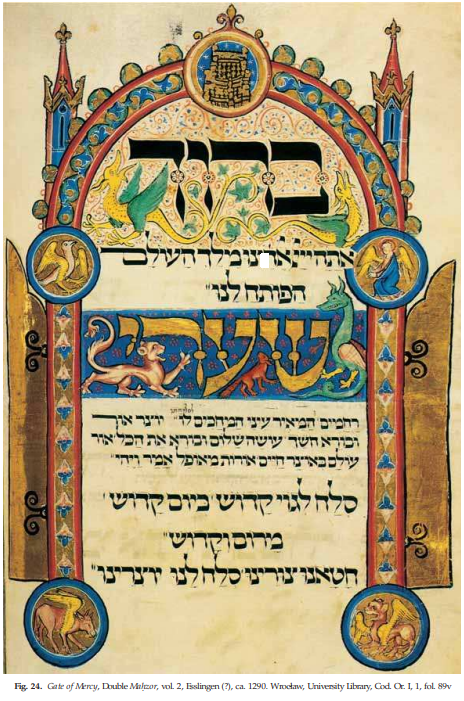 ברוך
אתה מלך העולם
הפותח לנו
שערי
רחמים המאיר עיני המחכים יוצר אור
ובורא חשך עושה שלום ובורא את הכל אור
עולם באוצר חיים אורות מאופל אמר ויהי
סלח לגוי קדוש ביום קדוש
מרום וקדוש
חטאנו צורינו סלח לנו יוצרינו
Fig. 24. Gate of Mercy, Double Maḥzor, vol. 2, Esslingen (?), ca. 1290. Wrocław, University Library, Cod. Or. I, 1, fol. 89v